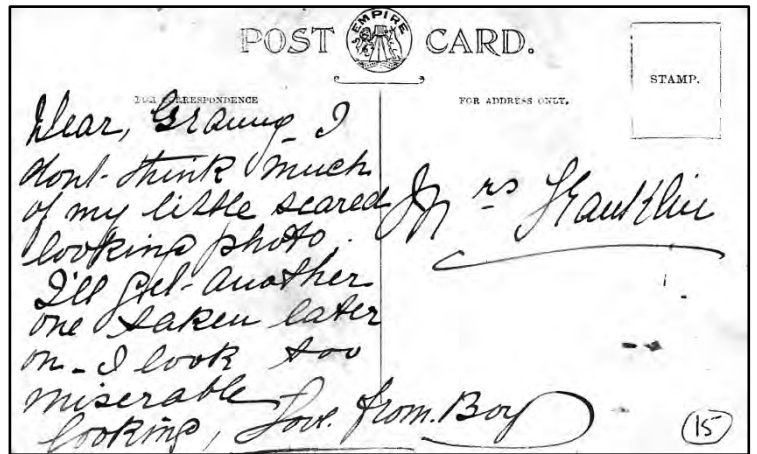 POST CARD.
EMPIRE
STAMP.
FOR CORRESPONDENCE
FOR ADDRESS ONLY.
Dear, Granny - I
dont think much
of my little scared
looking photo.
I'll get another
one taken later
on - I look too
miserable
looking, Love from Boy
Mrs Franklin
15